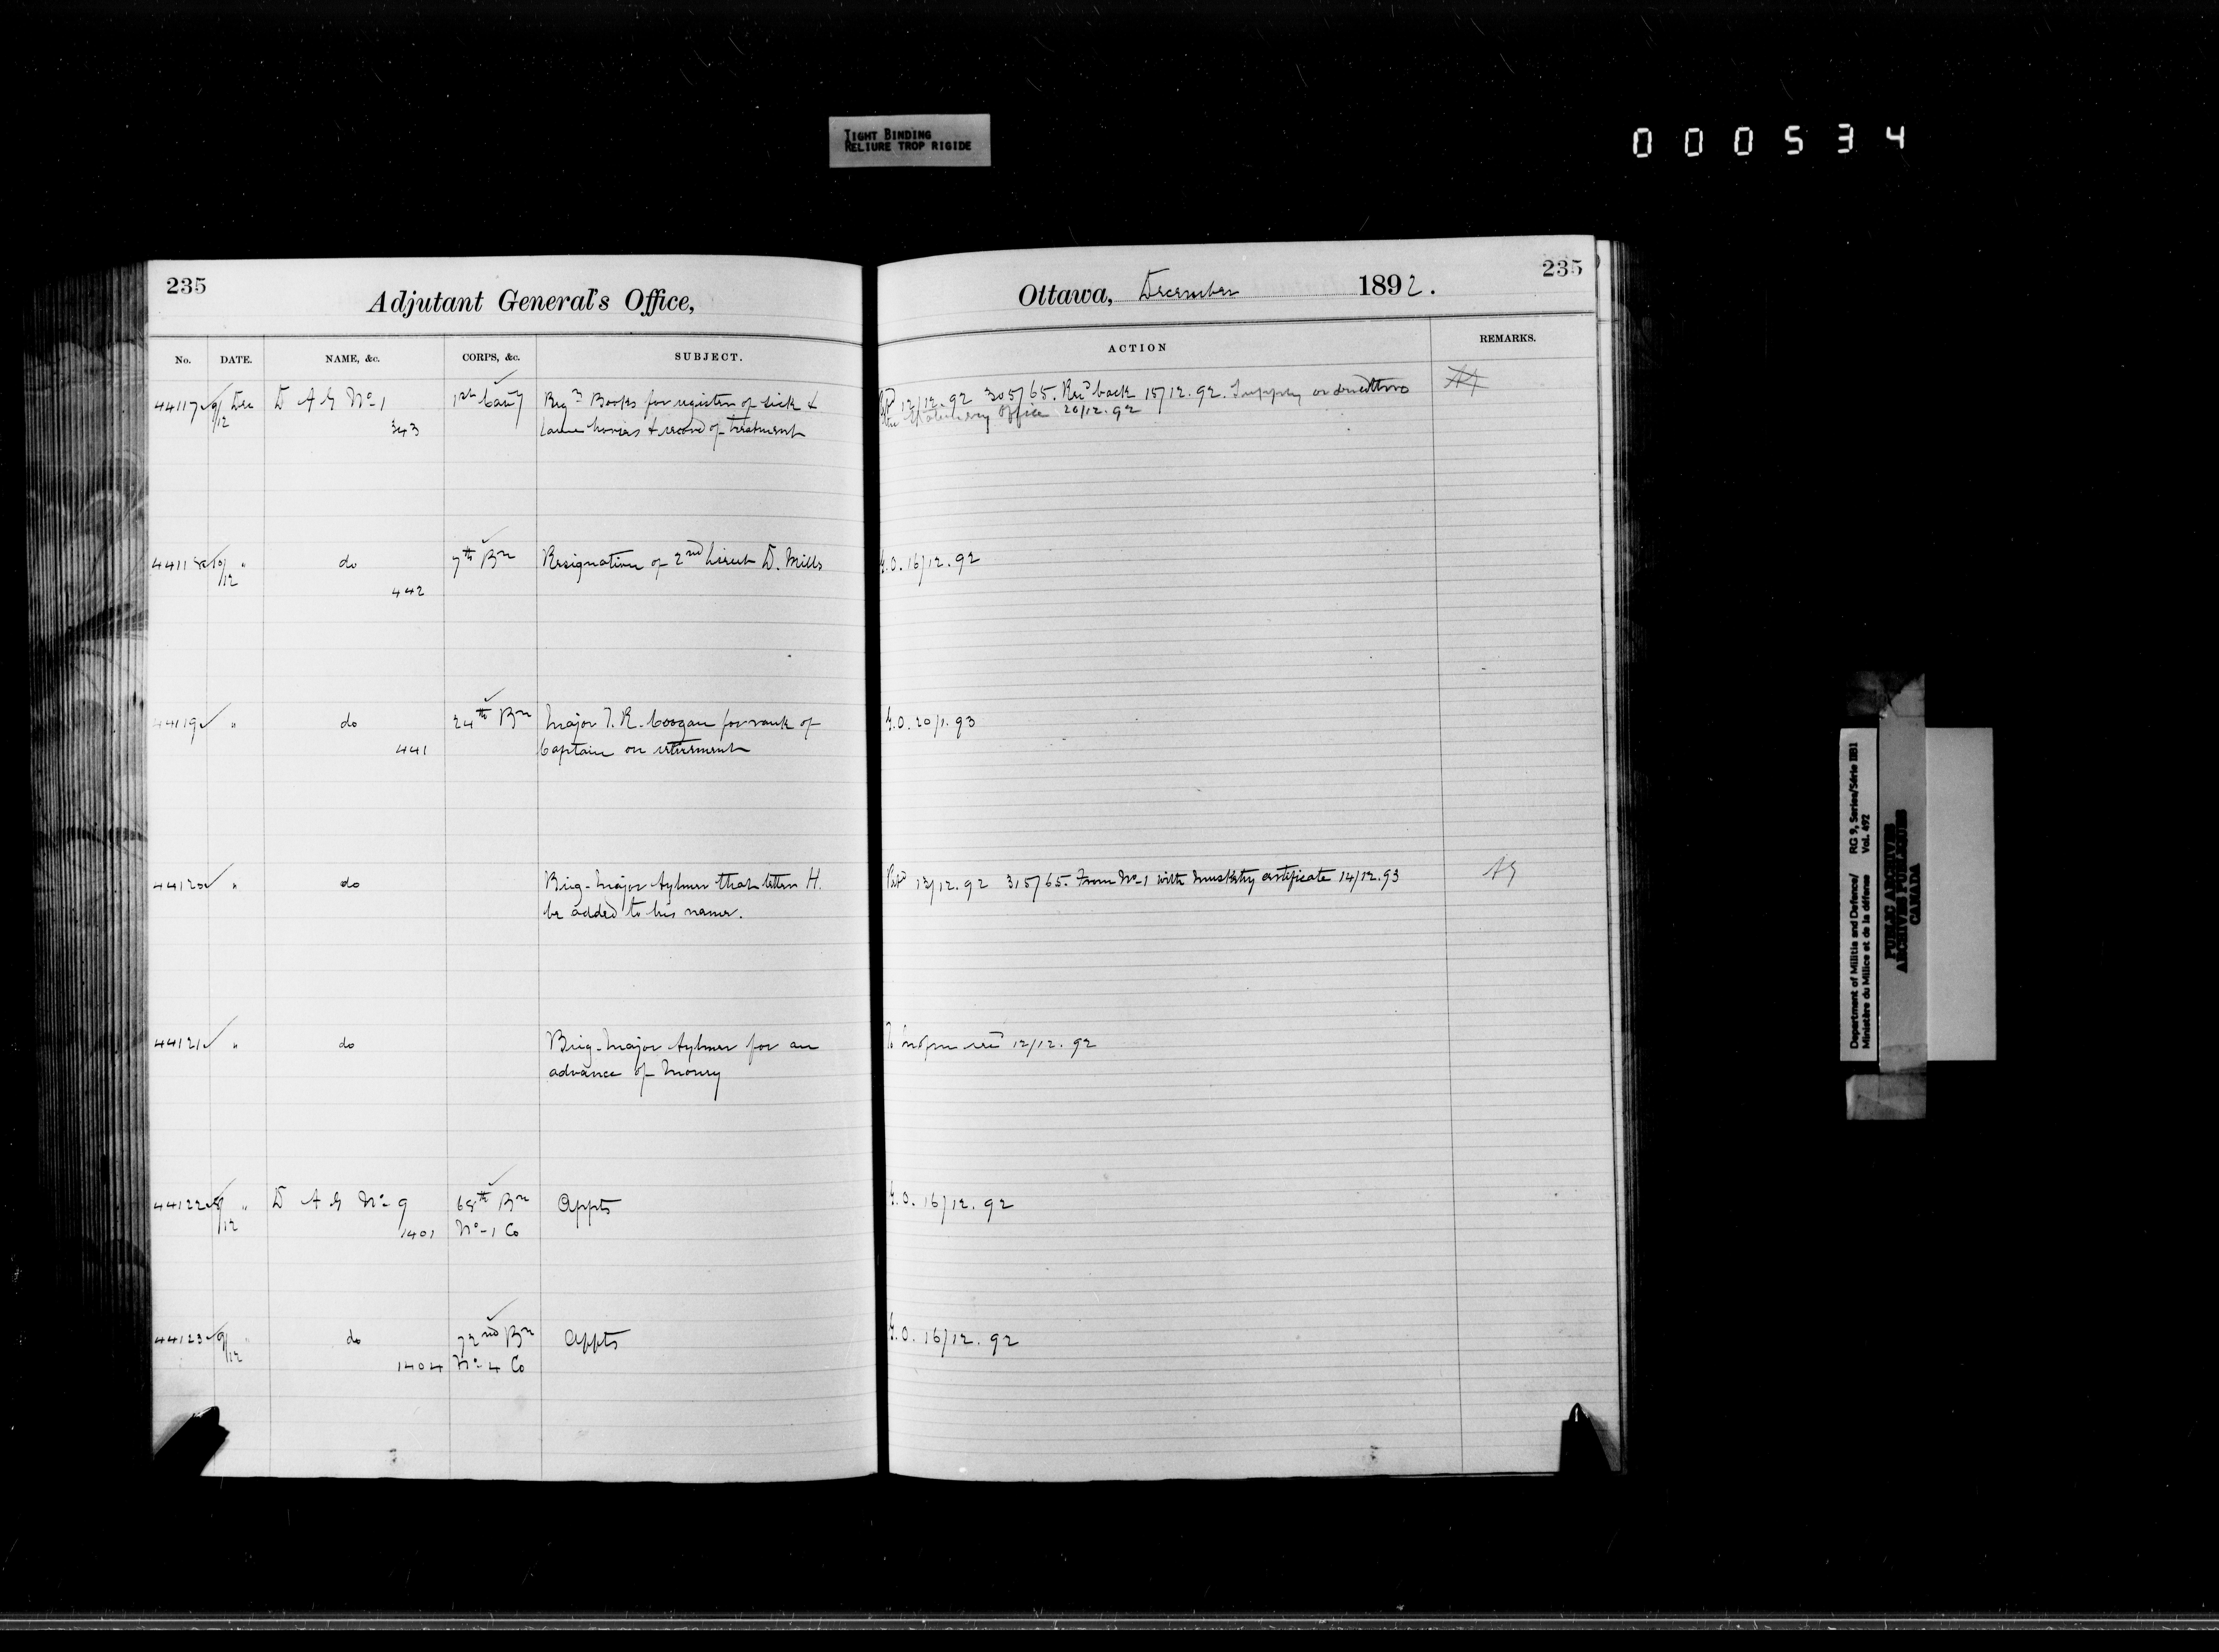 TIGHT BINDING
RELIURE TROP RIGIDE
000534
235
Adjutant General's Office,
No. DATE. NAME, &c. CORPS, &c. SUBJECT.
44117 9/12 Dec D A G No 1 1st Cavy Reqn Books for register of sick &
343 lame horses & record of treatment
44118 10/12 " do 7th Bn Resignation of 2nd Lieut D. Mills
442
44119 " do 24th Bn Major T. R. Coogan for rank of
441 Captain on retirement
44120 " do Brig-Major Aylmer that letter H.
be added to his name.
44121 " do Brig-Major Aylmer for an
advance of money
44122 9/12 " D A G No 9 68th Bn Appts
1401 No-1 Co
44123 9/12 " do 72nd Bn Appts
1404 No-4 Co
235
Ottawa, December 1892.
ACTION REMARKS.
12/12.92 305/65. Recd back 15/12.92. Supply
the Stationery Office 20/12.92
G.O. 16/12.92
G.O. 20/1.93
12/12.92 315/65. From No-1 with Musketry certificate 14/12.93 AG
12/12.92
G.O. 16/12.92
G.O. 16/12.92
Department of Militia and Defence/ RG 9, Series/Série IIB1
Ministère du Milice et de la défense Vol. 492
PUBLIC ARCHIVES
ARCHIVES PUBLIQUES
CANADA